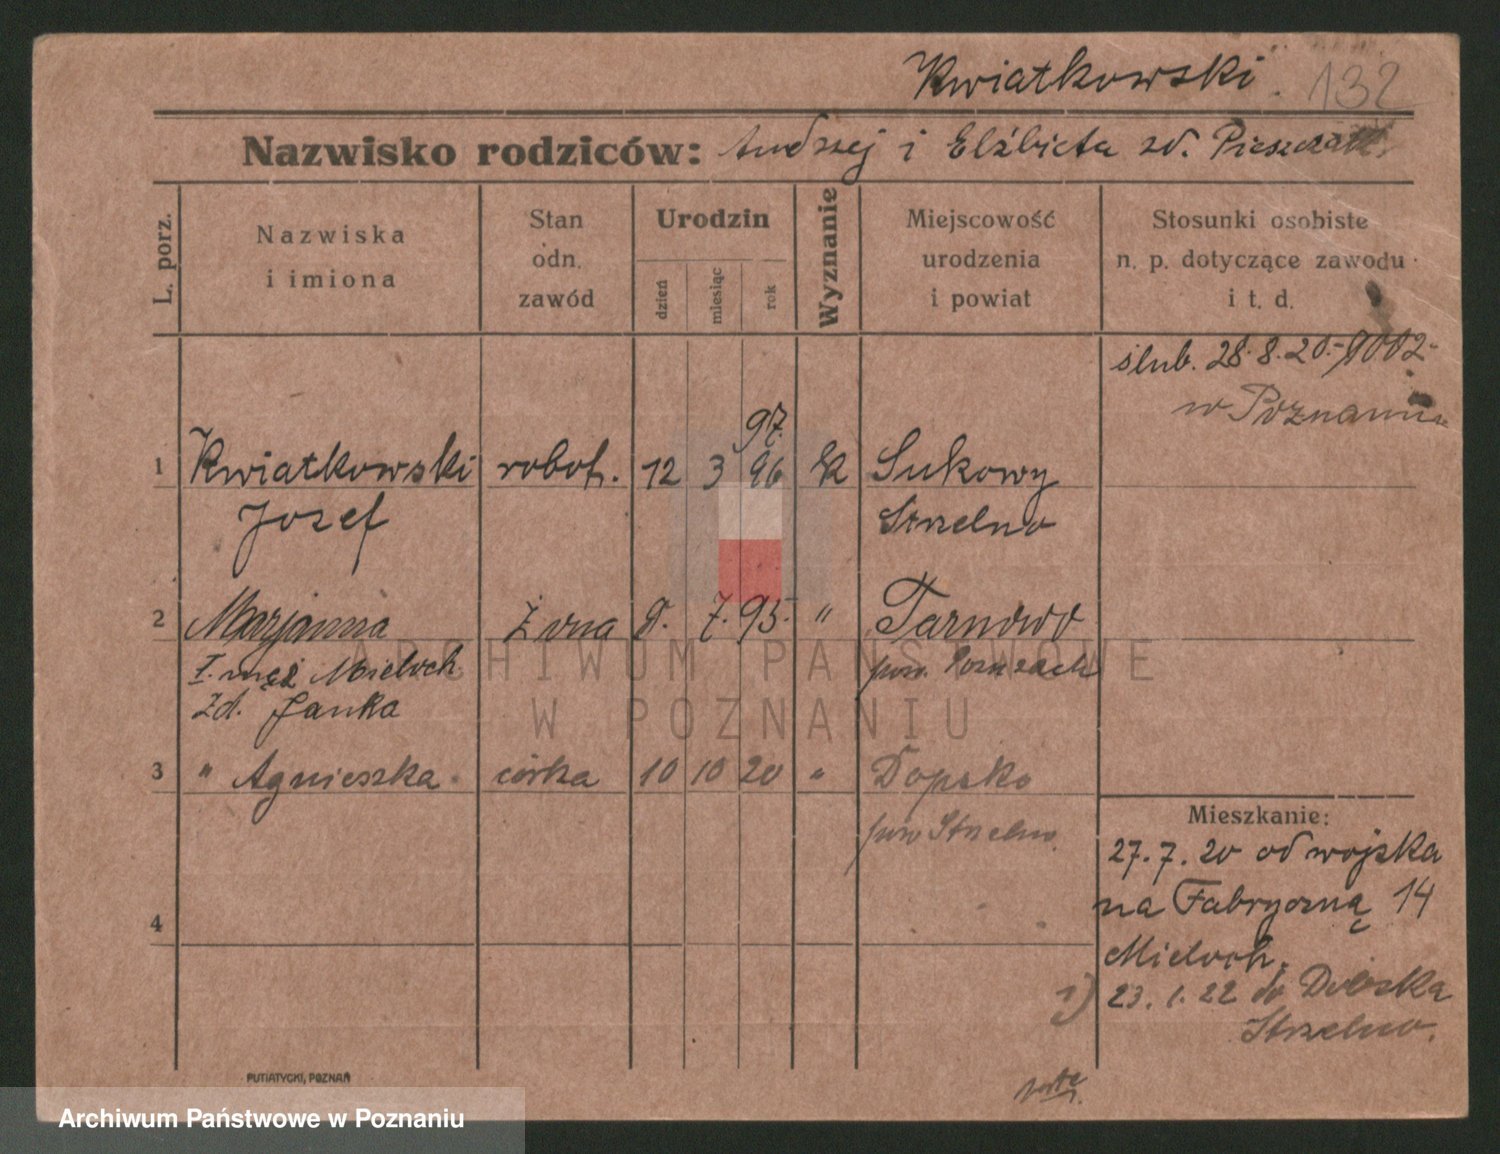 Kwiatkowski. 132
Nazwisko rodziców: Andrzej i Elżbieta zd.
L. porz.
Nazwiska
i imiona
Stan
odn.
zawód
Urodzin
dzień
miesiąc
rok
Wyznanie
Miejscowość
urodzenia
i powiat
Stosunki osobiste
n. p. dotyczące zawodu
i t. d.
ślub. 28.8.20.
w Poznaniu
97.
1 Kwiatkowski robot. 12 3 96 k Sukowy
Józef Strzelno
2 Marjanna Żona 8. 7. 95. " Tarnowo
I. mąż Mieloch. pow.
Zd. Janka
3 " Agnieszka córka 10 10 20 " Dopsko
pow Strzelno.
4
Mieszkanie:
27.7.20 od wojska
na Fabryczną 14
Mieloch.
1) 23.1.22 do
Strzelno.
PUTIATYCKI, POZNAŃ
ARCHIWUM PAŃSTWOWE
W POZNANIU
Archiwum Państwowe w Poznaniu